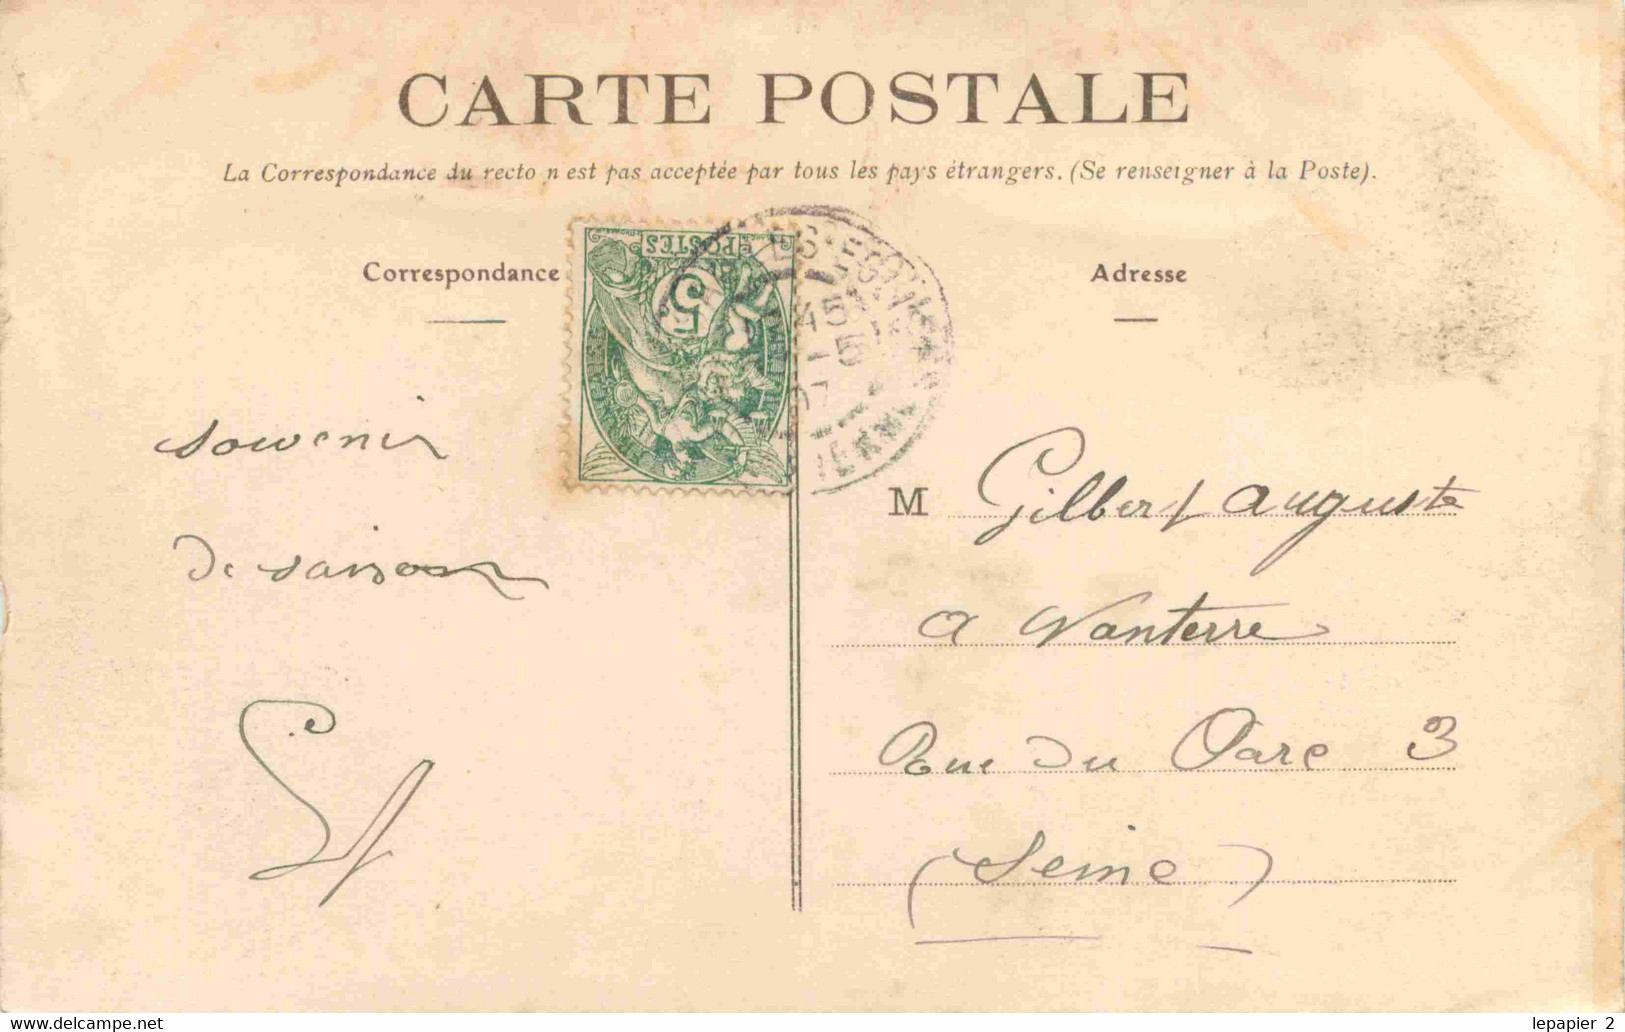 CARTE POSTALE
La Correspondance du recto n'est pas acceptée par tous les pays étrangers. (Se renseigner à la Poste).
Correspondance
Adresse
POSTES
5
45
-5
07
souvenir
de saison
M Gilbert auguste
a Nanterre
Rue du Parc 3
(Seine)
lepapier_2